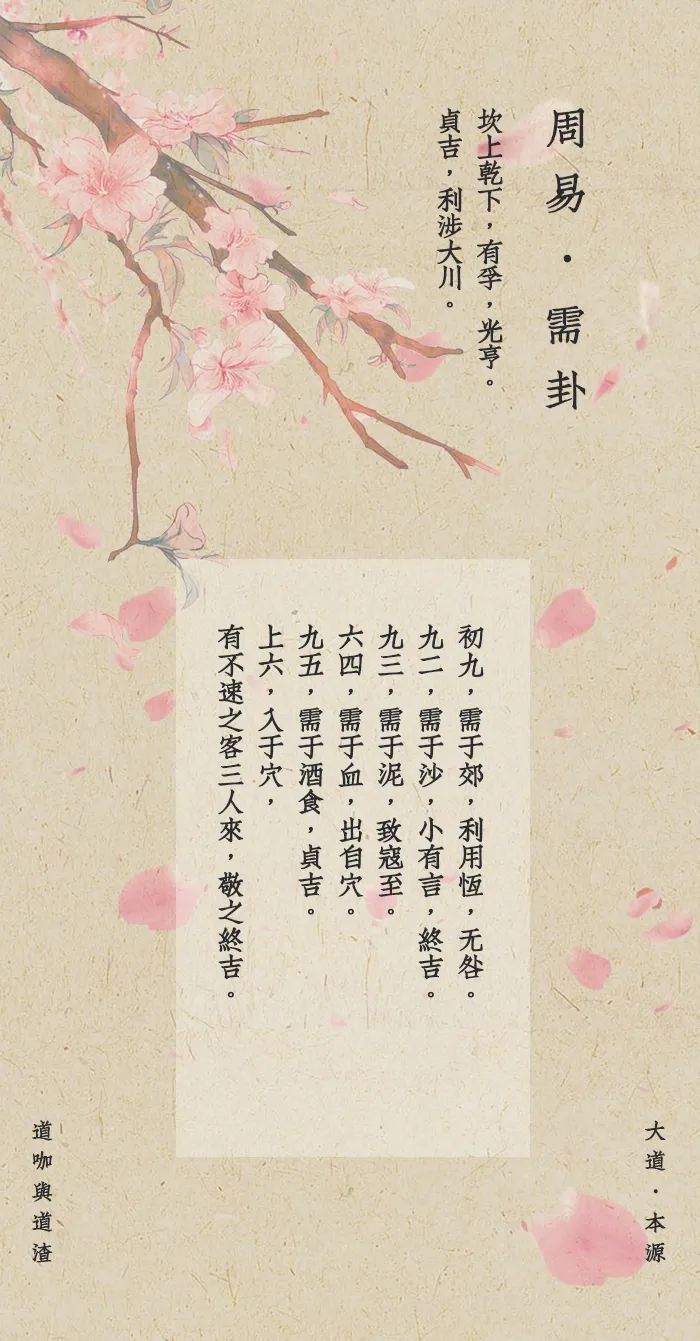 周易·需卦
坎上乾下，有孚，光亨。
貞吉，利涉大川。
初九，需于郊，利用恆，无咎。
九二，需于沙，小有言，終吉。
九三，需于泥，致寇至。
六四，需于血，出自穴。
九五，需于酒食，貞吉。
上六，入于穴，
有不速之客三人來，敬之終吉。
大道·本源
道咖與道渣